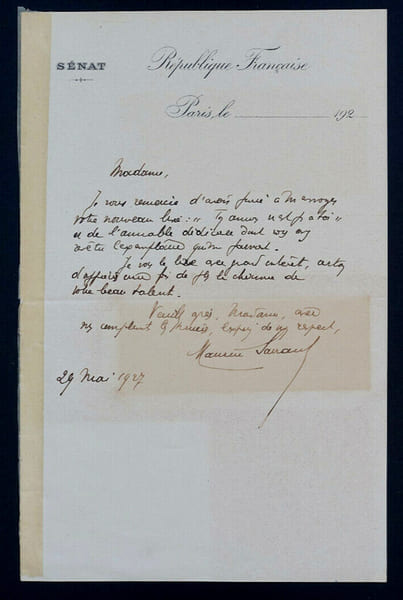 SÉNAT
République Française
Paris, le 192
Madame,
Je vous remercie d'avoir pensé à m'envoyer
votre nouveau livre : " Ton amour n'est pas à toi "
et de l'aimable dédicace dont vous
l'exemplaire
Je vais le lire avec grand intérêt,
d'apprécier une fois de plus le charme de
votre beau talent.
Veuillez agréer, Madame, avec
mes compliments, de mon respect,
Maurice Sarraut
29 Mai 1927